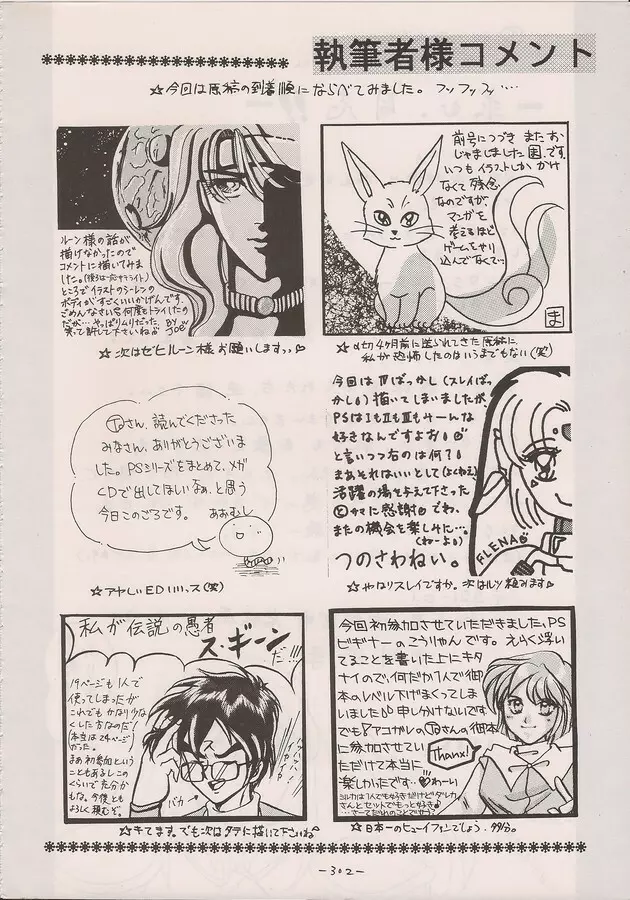 執筆者様コメント
☆今回は原稿の到着順にならべてみました。フッフッフ‥‥
ルーン様の話が
描けなかったので
コメントに描いてみま
した。(後ろは一応サテライト)
ところでイラストのシーレンの
ボディがすごくいいかげんです。
ごめんなさい。何度もトライしたの
だが…やっぱりムリだった。
笑って許して下さいねが BY JOE
☆次はゼヒルーン様お願いしますっ♡
前号につづき またお
じゃましました 困 です。
いつも イラストしか かけ
なくて 残念
なのですが、
マンガを
考えるほど
ゲームをやり
込んでなくてっ
ま
☆〆切4ヶ月前に送られてきた原稿に、
私が恐怖したのはいうまでもない(笑)
さん、読んでくださった
みなさん、ありがとうございま
した。PSシリーズをまとめて、メガ
CDで出してほしいなぁ、と思う
今日このごろです。 あおむし
☆アヤしいEDいいっス(笑)
今回はⅣばっかし(スレイばっ
かし)描いてしまいましたが、
PSはⅠもⅡもⅢもみーんな
好きなんですよお!
と言いつつ右のは何?!
まあそれはいいとして(よくねえ)
活躍の場を与えて下さった
サマに感謝 でわ、
またの機会を楽しみに…。
(わーよい)
つのさわねい。
FLENA
☆やはりスレイですか。次はルツ頼みます♡
私が伝説の愚者
ス・ギーン
だ!!!
19ページも1人で
使ってしまったが
これでもかなり少な
くした方なのだ!
(本当は24ページ)
だった。
まあ初参加という
こともあるしこの
くらいで充分か
もな。今後とも
よろしく頼むぞ。
バカ→
☆キてます。でも次はタテに描いて下さいね
今回初参加させていただきました、PS
ビギナーのこうりゃんです。えらく浮い
てることを書いた上にキタ
ナイので、何だか1人で御
本のレベル下げまくってしま
いました 申し分けないです
でもアコガレの さんの御本
に参加させてい
ただけて本当に
楽しかったです…♡わーい
シルカは1人でも好きだけどダレカ
さんとセットでもっと好き
…さーてだれのことでせう?
Thanx!
☆日本一のヒューイファンでしょう。多分。
-302-